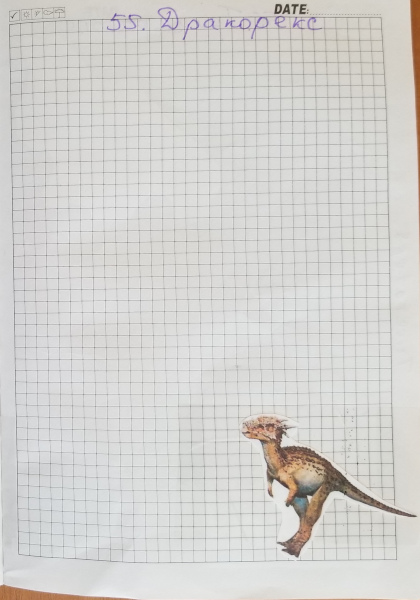 DATE:
55. Дракорекс